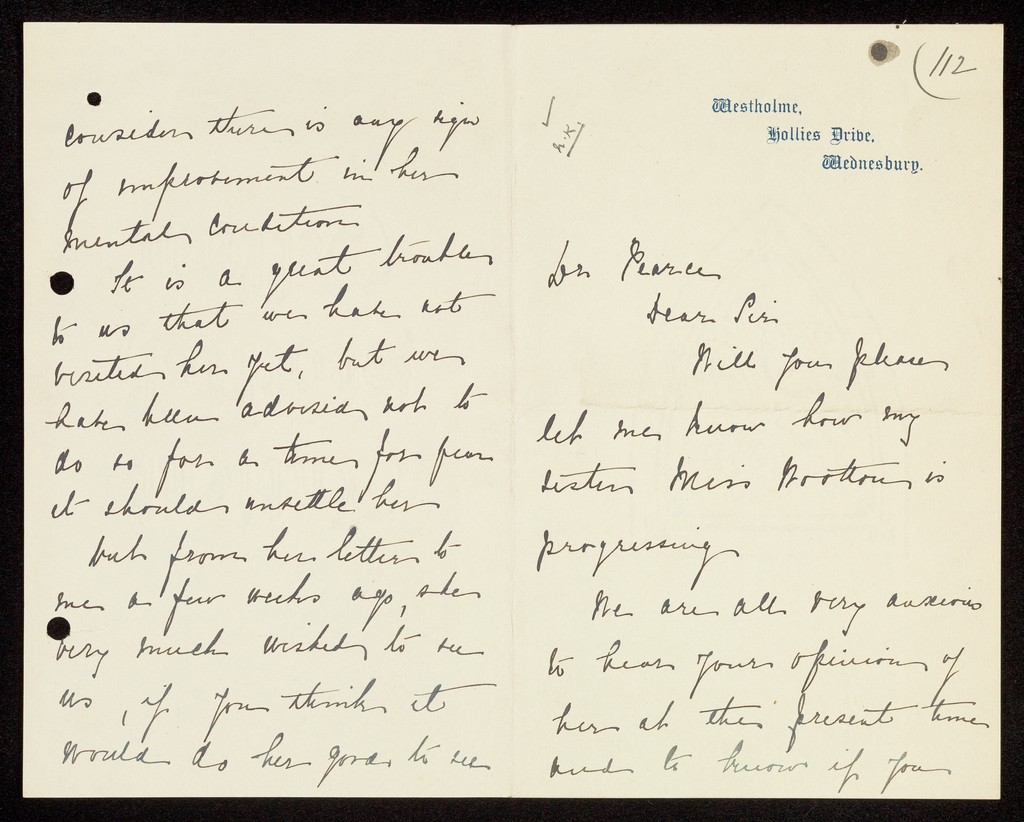 (112
Westholme,
Hollies Drive,
Wednesbury.
Dr Pearce
Dear Sir
Will you please
let me know how my
sister Miss Wootton is
progressing
We are all very anxious
to hear your opinion of
her at the present time
and to know if you
consider there is any sign
of improvement in her
mental condition
It is a great trouble
to us that we have not
visited her yet, but we
have been advised not to
do so for a time for fear
it should unsettle her
but from her letter to
me a few weeks ago, she
very much wished to see
us, if you think it
would do her good to see